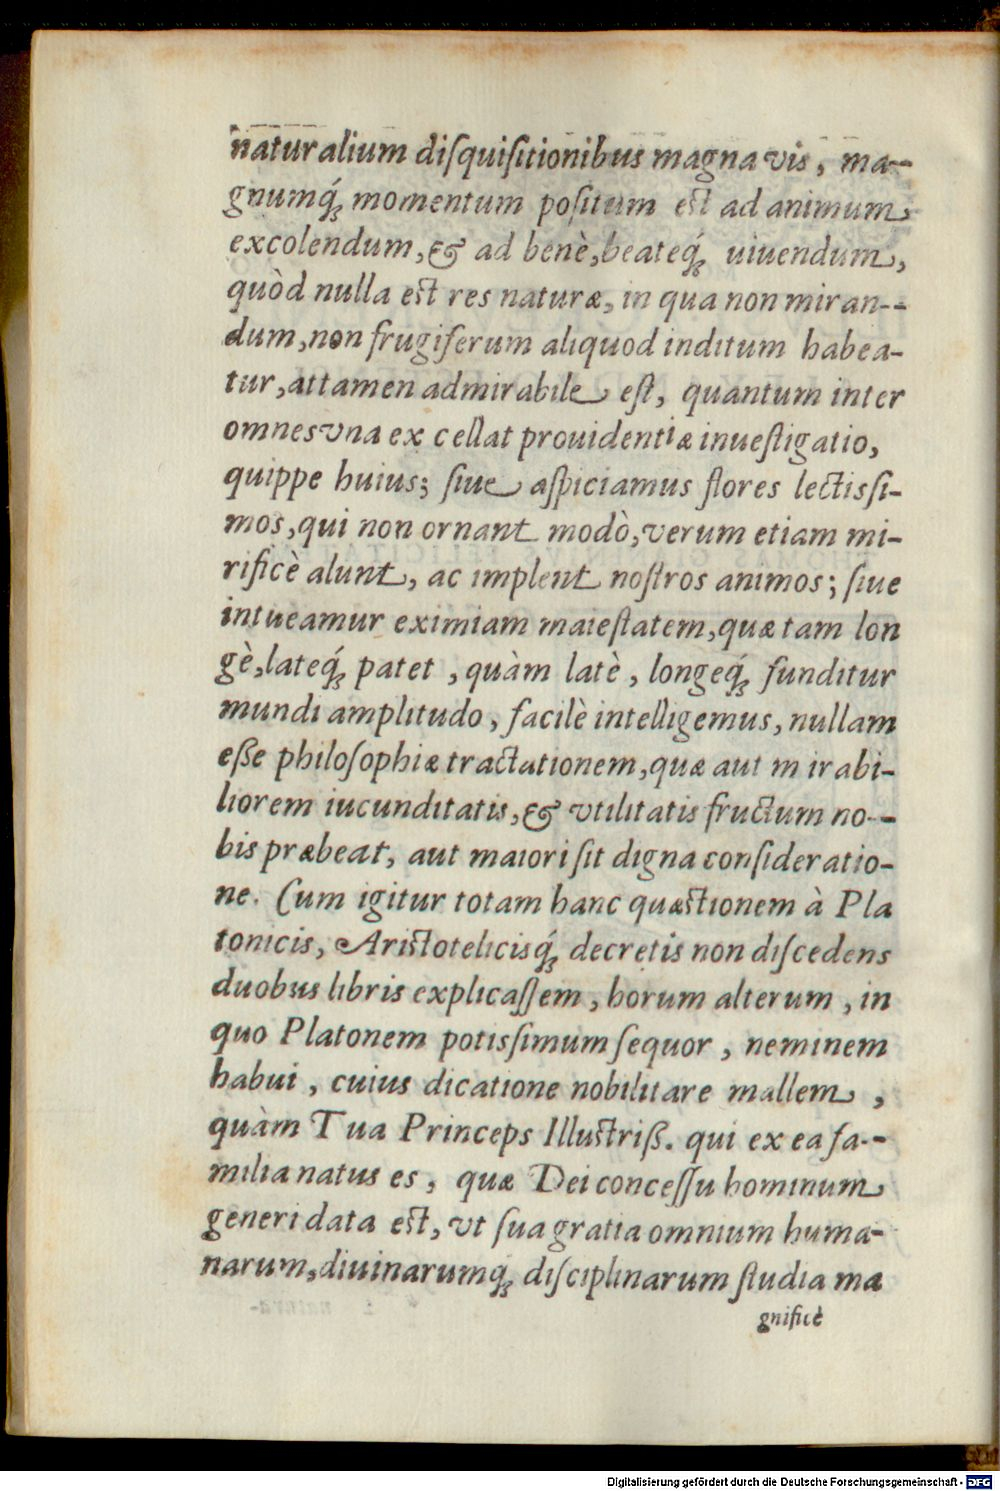 naturalium diſquiſitionibus magna vis, ma-
gnumq́; momentum poſitum est ad animum
excolendum, & ad benè, beateq́; uiuendum,
quòd nulla est res naturæ, in qua non miran-
dum, non frugiferum aliquod inditum habea-
tur, attamen admirabile eſt, quantum inter
omnes vna excellat prouidentiæ inueſtigatio,
quippe huius; ſiue aſpiciamus flores lectisſi-
mos, qui non ornant modò, verum etiam mi-
rificè alunt, ac implent noſtros animos; ſiue
intueamur eximiam maieſtatem, quæ tam lon
gè, lateq́; patet, quàm latè, longeq́; funditur
mundi amplitudo, facilè intelligemus, nullam
eße philoſophiæ tractationem, quæ aut mirabi-
liorem iucunditatis, & vtilitatis fructum no-
bis præbeat, aut maiori ſit digna conſideratio-
ne. Cum igitur totam hanc quæstionem à Pla
tonicis, Aristotelicisq́; decretis non diſcedens
duobus libris explicaſſem, horum alterum, in
quo Platonem potisſimum ſequor, neminem
habui, cuius dicatione nobilitare mallem,
quàm Tua Princeps Illustriß. qui ex ea fa-
milia natus es, quæ Dei conceſſu hominum
generi data est, vt ſua gratia omnium huma-
narum, diuinarumq́; diſciplinarum ſtudia ma
gnificè
Digitalisierung gefördert durch die Deutsche Forschungsgemeinschaft - DFG